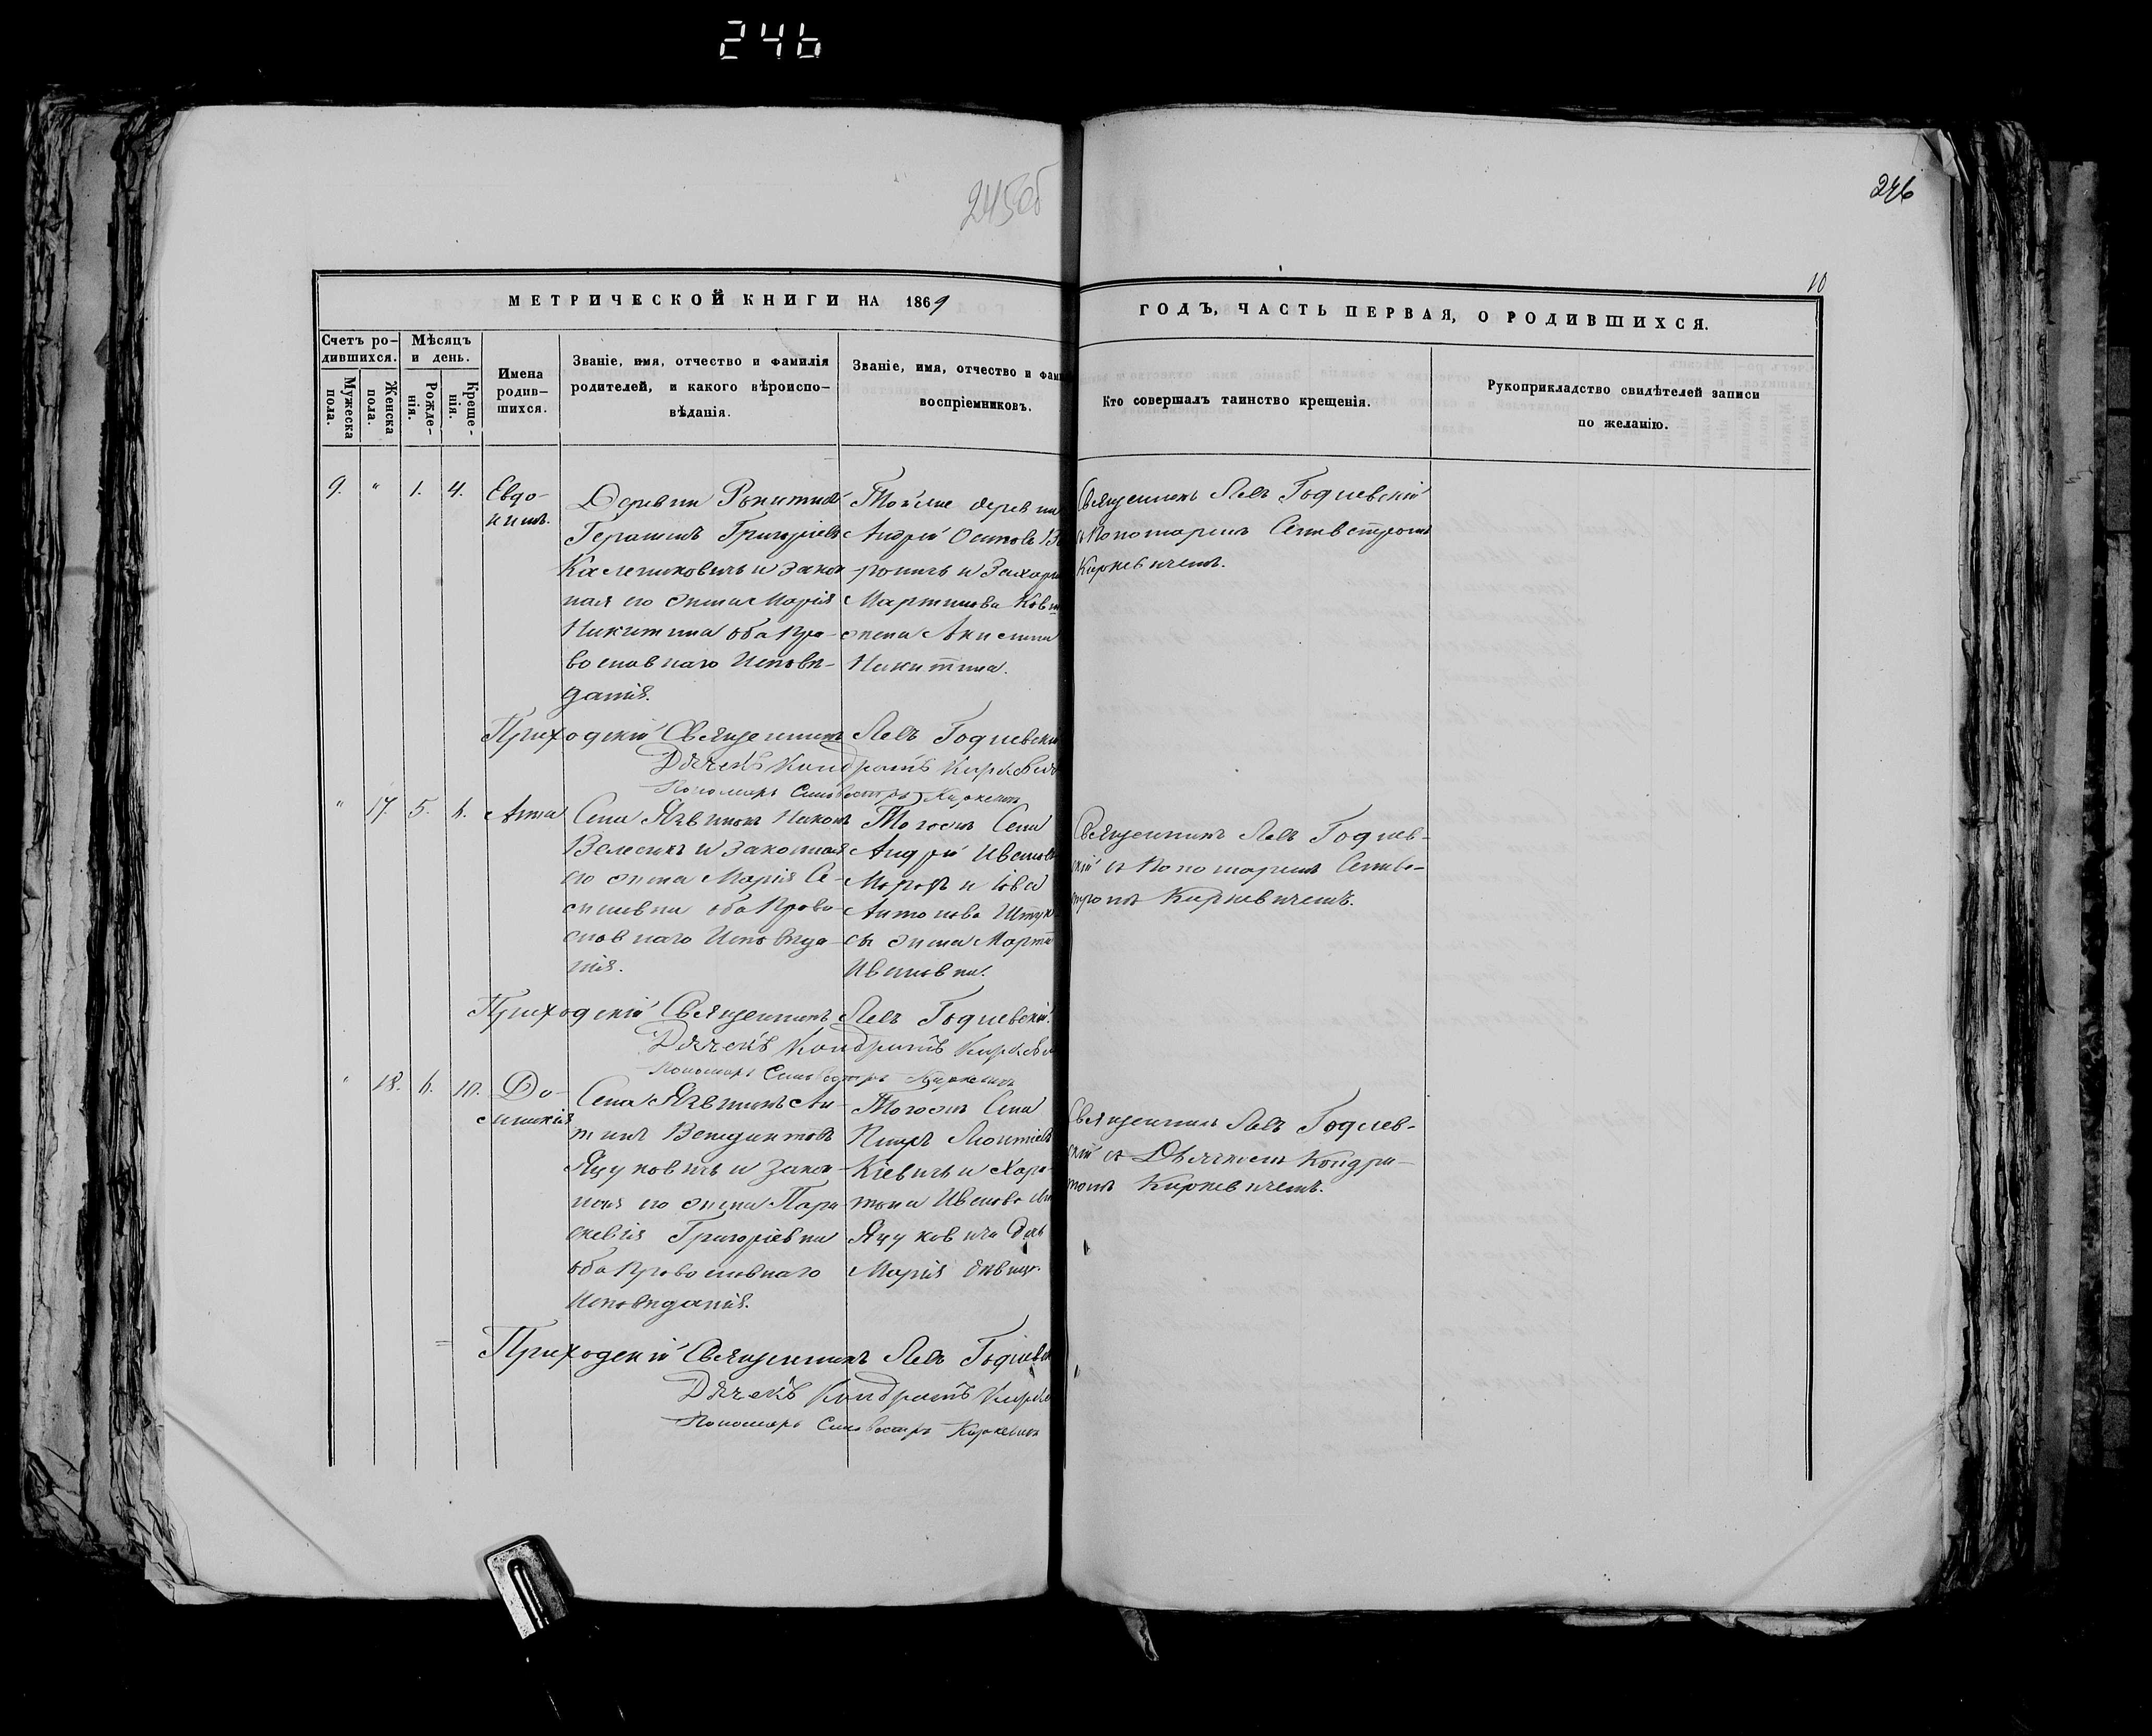 246
245об
246
10
МЕТРИЧЕСКОЙ КНИГИ НА 1869
ГОДЪ, ЧАСТЬ ПЕРВАЯ, О РОДИВШИХСЯ.
Счетъ ро-
дившихся.
Мужеска
пола.
Женска
пола.
Мѣсяцъ
и день.
Рожде-
нія.
Креще-
нія.
Имена
родив-
шихся.
Званіе, имя, отчество и фамилія
родителей, и какого вѣроиспо-
вѣданія.
Званіе, имя, отчество и фами
воспріемниковъ.
Кто совершалъ таинство крещенія.
Рукоприкладство свидѣтелей записи
по желанію.
9. " 1. 4. Евдо-
кимъ.
Деревни
Герасимъ Григоріевъ
и закон
ная его жена Марія
Никитина оба Пра-
вославнаго Исповѣ-
данія.
Тойже деревни
Андрей Осиповъ
и Захарія
Мартинова
жена Анисима
Никитина.
Священникъ Левъ Годлевскій
съ Пономаремъ Сильвестромъ
Киркевичемъ.
Приходскій Священникъ Левъ Годлевскій
Дячекъ Кондратъ Киркевичъ
Пономарь Сильвестръ Киркевичъ
" 17. 5. 6. Анна
Села Язвинокъ
и законная
его жена Марія
оба Право
славнаго Исповѣда-
нія.
Тогожъ Села
Андрей Ивановъ
Морозъ и Іова
Антонова
жена Марта
Ивановна.
Священникъ Левъ Годлев-
скій съ Пономаремъ Сильве-
стромъ Киркевичемъ.
Приходскій Священникъ Левъ Годлевскій.
Дячекъ Кондратъ Киркевичъ
Пономарь Сильвестръ Киркевичъ
" 18. 6. 10. До-
Села Язвинокъ
Венедиктовъ
Яцуковичъ и закон-
ная его жена Пара-
скевія Григоріевна
оба Православнаго
Исповѣданія.
Тогожъ Села
Петръ Леонтіевъ
и Хари-
тона Иванова
Яцуковича дочь
Марія дѣвица.
Священникъ Левъ Годлев-
скій съ Дьячкомъ Кондра-
томъ Киркевичемъ.
Приходскій Священникъ Левъ Годлевск
Дячекъ Кондратъ Кирке
Пономарь Сильвестръ Киркевичъ